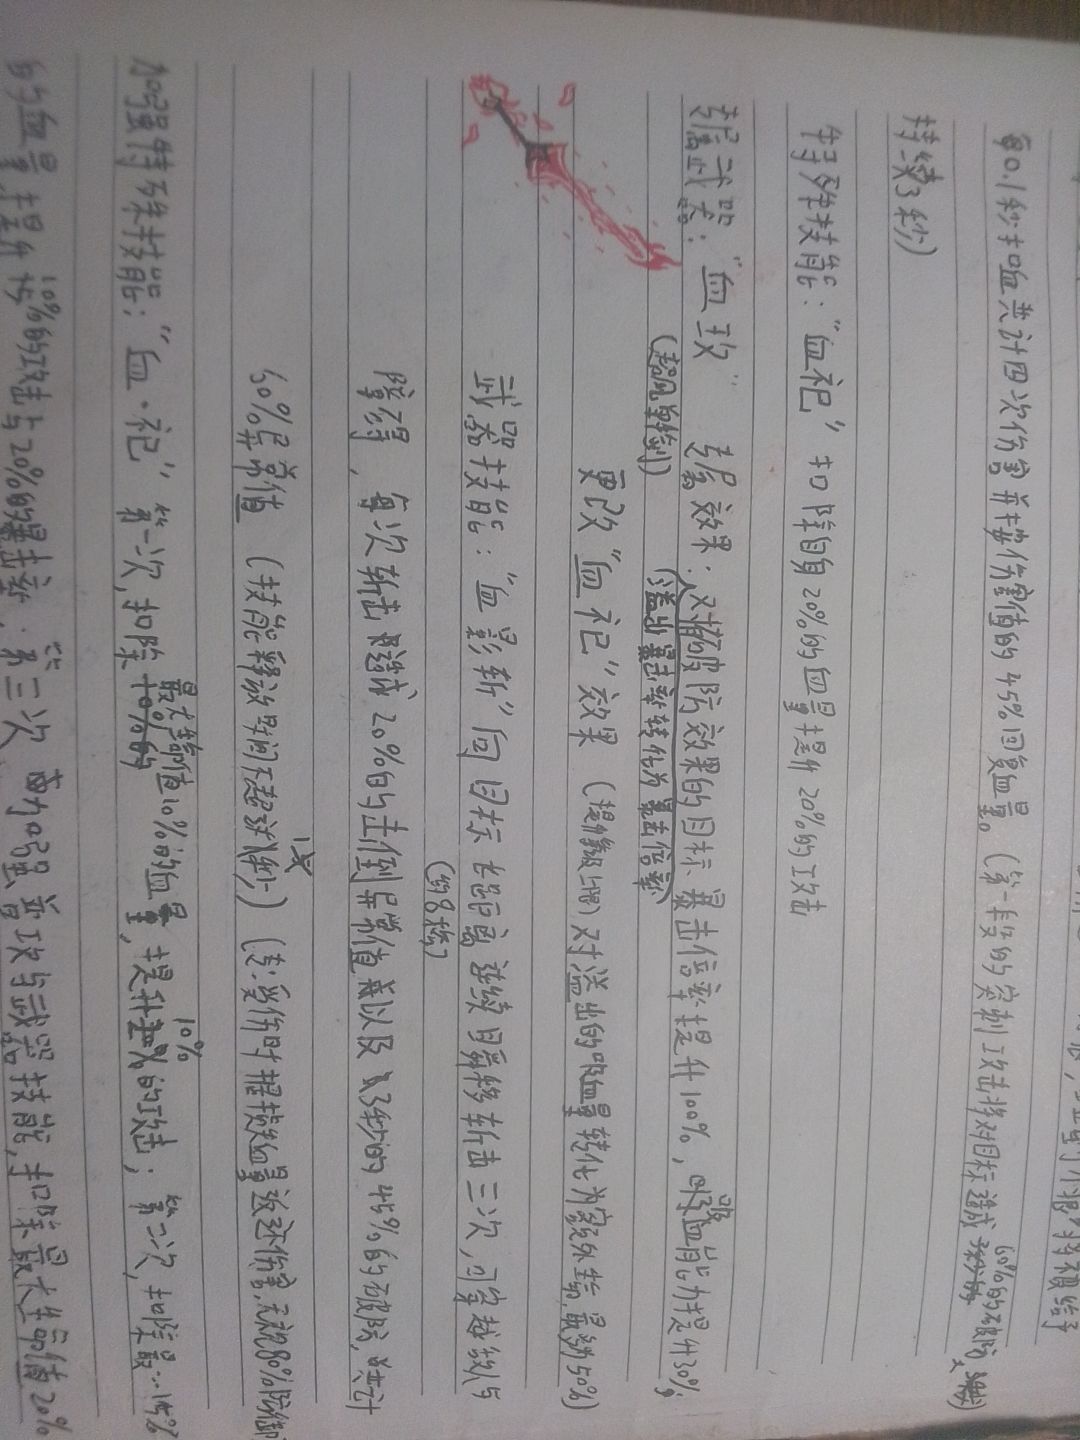 每0.1秒扣血共计四次伤害并按伤害值的45%回复血量。(第一段的突刺攻击将对目标造成60%的破防
持续3秒)
特殊技能:“血祀” 扣除自身20%的血量提升20%的攻击
专属武器:“血玫” 专属效果:对有破防效果的目标暴击倍率提升100%,吸血能力提升30%;
(超凡单手剑) (溢出暴击率转化为暴击倍率)
更改“血祀”效果 (提升叠加上限) 对溢出的吸血量转化为额外生命,最多50%)
武器技能:“血影斩”向目标长距离连续瞬移斩击三次,可穿越敌人与
(约8格)
障碍,每次斩击造成20%的击倒异常值以及3秒的45%的破防,共计
60%异常值 (技能释放期间不起飞或升)(受伤时根据血量返还伤害,无视80%防御
加强特殊技能:“血·祀” 第一次,扣除最大生命值10%的血量,提升10%的攻击;第二次,扣除最…15%
的血量,提升10%的攻击与20%的暴击率;第三次 再加强普攻与武器技能,扣除最大生命值20%